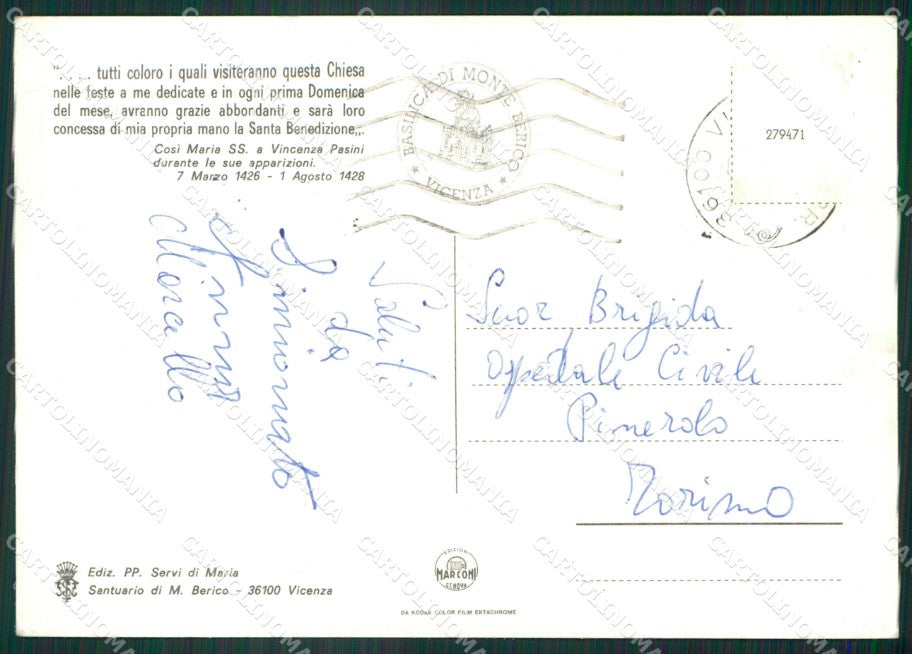 "... tutti coloro i quali visiteranno questa Chiesa
nelle feste a me dedicate e in ogni prima Domenica
del mese, avranno grazie abbordanti e sarà loro
concessa di mia propria mano la Santa Benedizione„.
Così Maria SS. a Vincenza Pasini
durante le sue apparizioni.
7 Marzo 1426 - 1 Agosto 1428
BASILICA DI MONTE BERICO
★ VICENZA ★
36100 VI
279471
Saluti
da
Marcello
Suor Brigida
Ospedale Civile
Pinerolo
Torino
Ediz. PP. Servi di Maria
Santuario di M. Berico - 36100 Vicenza
EDIZIONI
MARCONI
GENOVA
DA KODAK COLOR FILM EKTACHROME
CARTOLINOMANIA